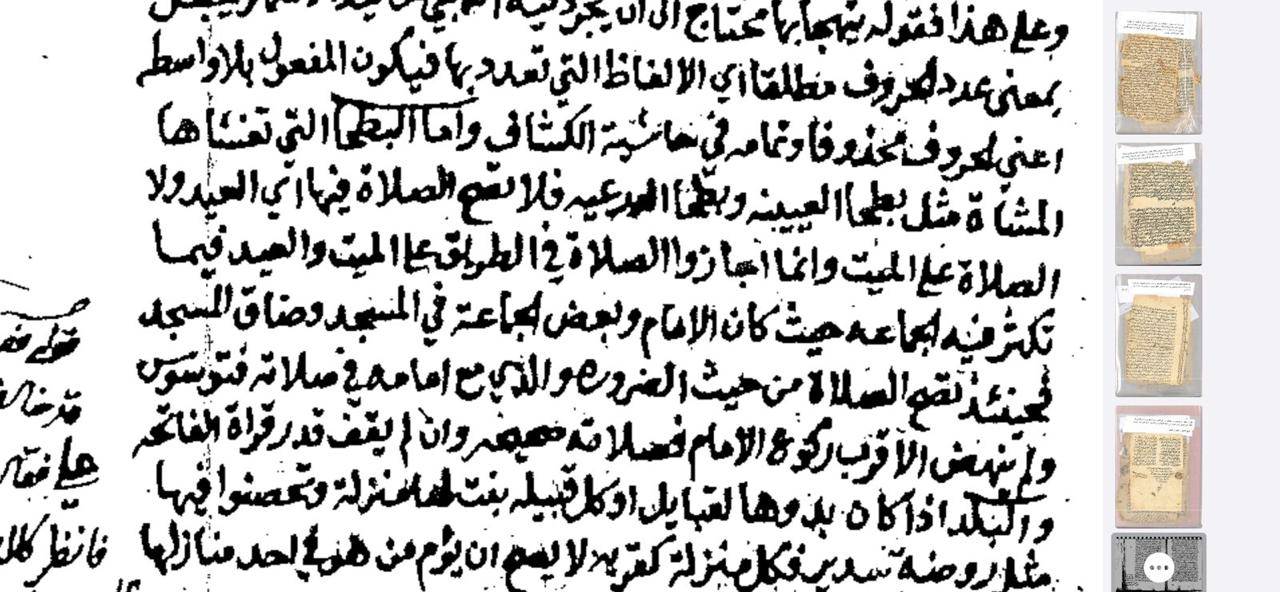 وعلى هذا فقوله يتهجا بها محتاج الى ان يجرد
بمعنى عدد الحروف مطلقا اي الالفاظ التي تعدد بها فيكون المفعول بلا واسطه
اعني الحروف محذوفا وتمامه في حاشية الكشاف واما البطحا التي تغشاها
المشاة مثل بطحا وبطحا فلا تصح الصلاة فيها اي العيد ولا
الصلاة على الميت وانما اجازوا الصلاة في الطريق على الميت والعيد فيما
تكثر فيه الجماعه حيث كان الامام وبعض الجماعة في المسجد وضاق المسجد
فحينئذ تصح الصلاة من حيث الضروره والذي مع امامه في صلاته فتوسوس
ولم ينهض الا قرب ركوع الامام فصلاته صحيحه وان لم يقف قدر قراة الفاتحه
والبلد اذا كان بدوها لقبايل او كل قبيله بنت لها منزلة وتحصنوا فيها
مثل روضة سدير فكل منزلة كقريه لا يصح ان يؤم من هو في احد منازلها
قوله
على
فانظر